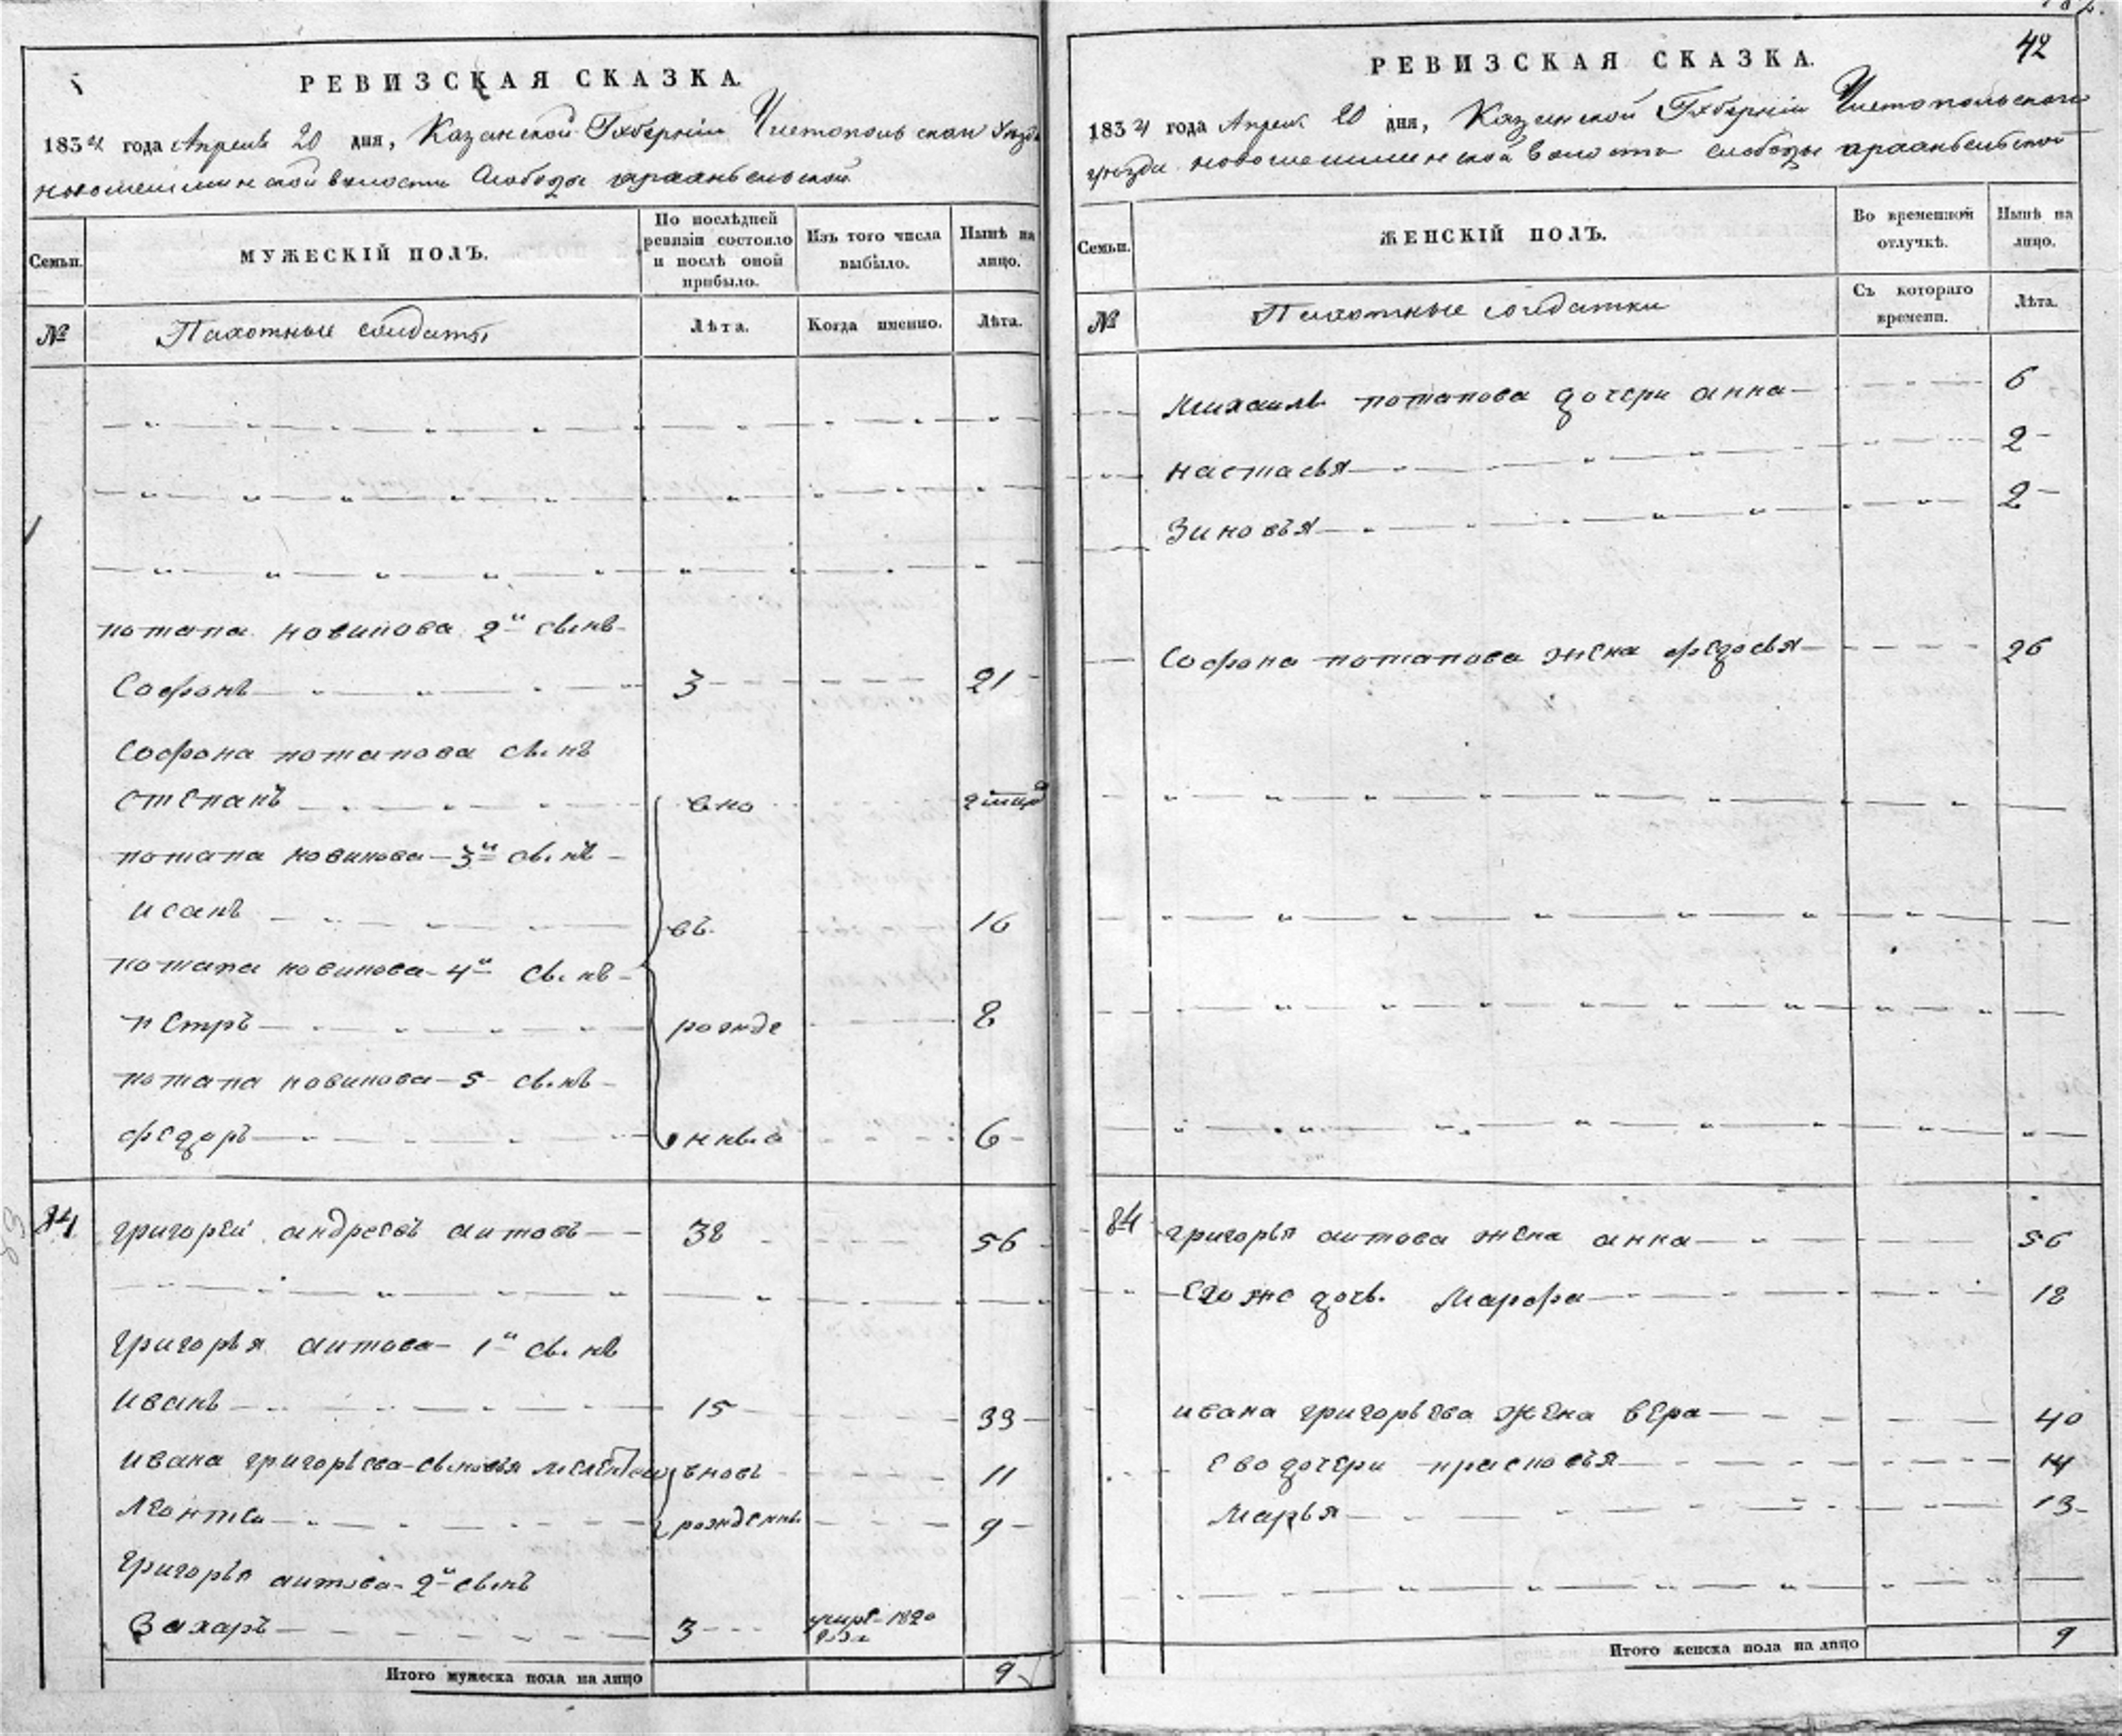 РЕВИЗСКАЯ СКАЗКА.
1834 года Апреля 20 дня, Казанской Губернии Чистопольскаго Уезда
новошешминской волости Слободы архангельской
Семьи.
МУЖЕСКІЙ ПОЛЪ.
По послѣдней ревизіи состояло и послѣ оной прибыло.
Изъ того числа выбыло.
Нынѣ на лицо.
№
Пахотные солдаты
Лѣта.
Когда именно.
Лѣта.
потапа новикова 2й сынъ
Софронъ 3 21
Софрона потапова сынъ
степанъ вно
потапа новикова 3й сынъ
иванъ въ 16
потапа новикова 4й сынъ
петръ рожде 8
потапа новикова 5 сынъ
федоръ нныа 6
84 григорей андреевъ аитовъ 38 56
григорья аитова 1й сынъ
иванъ 15 33
ивана григорьева сыновья вновь 11
леонтеи рожденны 9
григорья аитова 2й сынъ
Захаръ 3 умре 1820 года
Итого мужеска пола на лицо 9
42
РЕВИЗСКАЯ СКАЗКА.
1834 года Апреля 20 дня, Казанской Губерніи Чистопольскаго
уезда новошешминской волости слободы архангельской
Семьи.
ЖЕНСКІЙ ПОЛЪ.
Во временной отлучкѣ.
Нынѣ на лицо.
№
Пахотные солдатки
Съ котораго времени.
Лѣта.
Михаилы потапова дочери анна 6
настасья 2
Зиновья 2
Софрона потапова жена федосья 26
84 григорья аитова жена анна 56
его же дочь Марфа 18
ивана григорьева жена вера 40
ево дочери прасковья 14
Марья 13
Итого женска пола на лицо 9